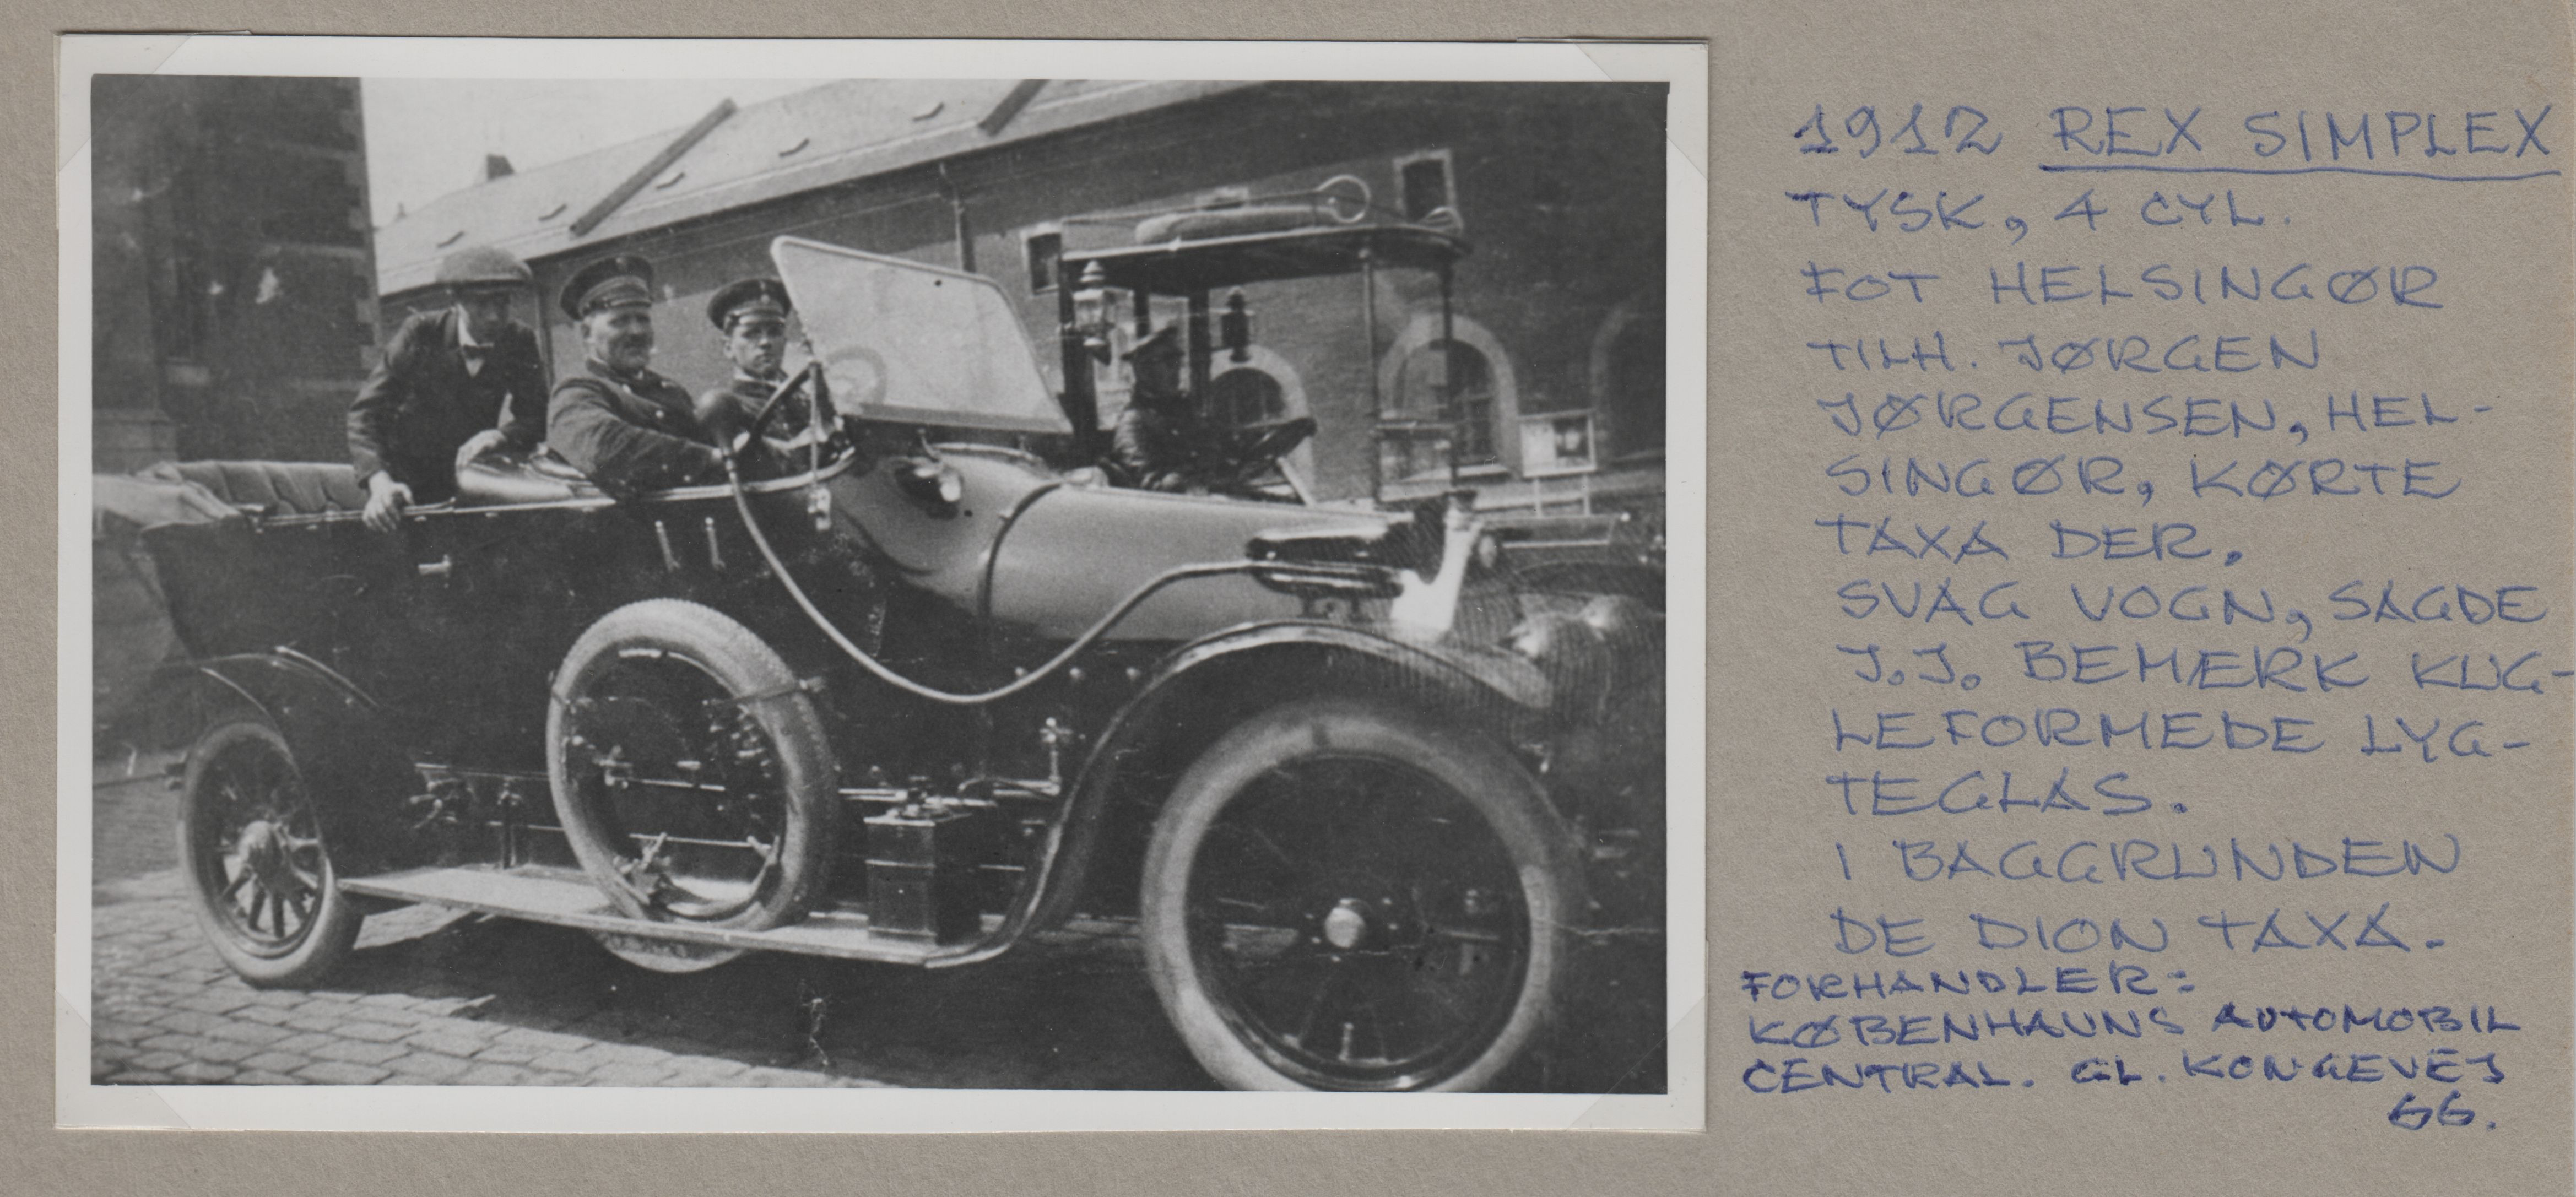 1912 REX SIMPLEX
TYSK, 4 CYL.
FOT HELSINGØR
TILH. JØRGEN
JØRGENSEN, HEL-
SINGØR, KØRTE
TAXA DER.
SVAG VOGN, SAGDE
J.J. BEMÆRK KUG-
LEFORMEDE LYG-
TEGLAS.
I BAGGRUNDEN
DE DION TAXA.
FORHANDLER:
KØBENHAVNS AUTOMOBIL
CENTRAL. GL. KONGEVEJ
66.